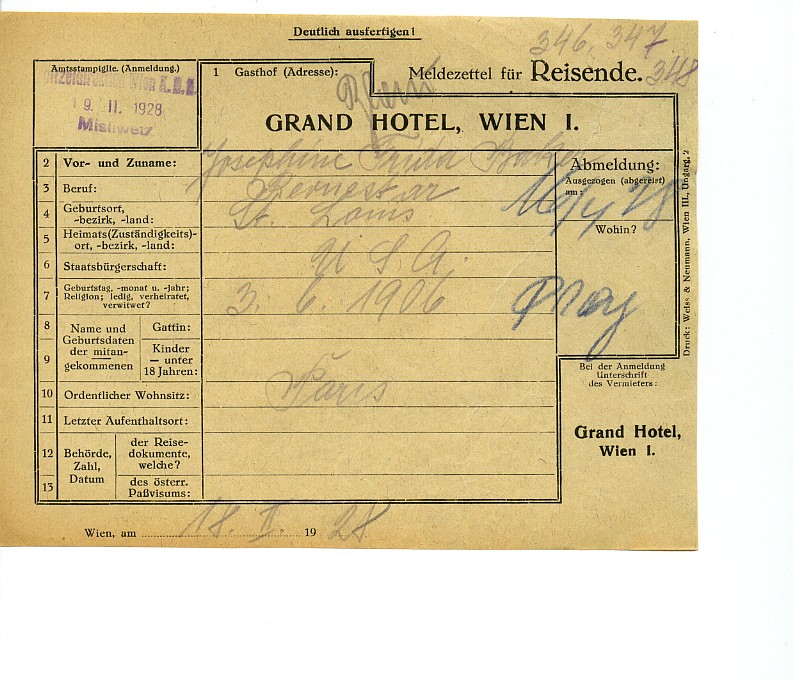 Deutlich ausfertigen!
346, 347
348
Amtsstampiglie. (Anmeldung.)
Wien
19. II. 1928
1 Gasthof (Adresse):
Meldezettel für Reisende.
GRAND HOTEL, WIEN I.
2 Vor- und Zuname: Josephine Frida Baker
3 Beruf: Revuestar
4 Geburtsort, -bezirk, -land: St. Louis
5 Heimats(Zuständigkeits)-ort, -bezirk, -land:
6 Staatsbürgerschaft: U.S.A.
7 Geburtstag, -monat u. -jahr; Religion; ledig, verheiratet, verwitwet? 3. 6. 1906
8 Name und Geburtsdaten der mitan-gekommenen Gattin:
9 Kinder — unter 18 Jahren:
10 Ordentlicher Wohnsitz: Paris
11 Letzter Aufenthaltsort:
12 Behörde, Zahl, Datum der Reise-dokumente, welche?
13 des österr. Paßvisums:
Abmeldung:
Ausgezogen (abgereist)
am:
Wohin?
Prag
Bei der Anmeldung
Unterschrift
des Vermieters:
Grand Hotel,
Wien I.
Druck: Weiss & Neumann, Wien III., Ungarg. 2
Wien, am 18. II. 19 28